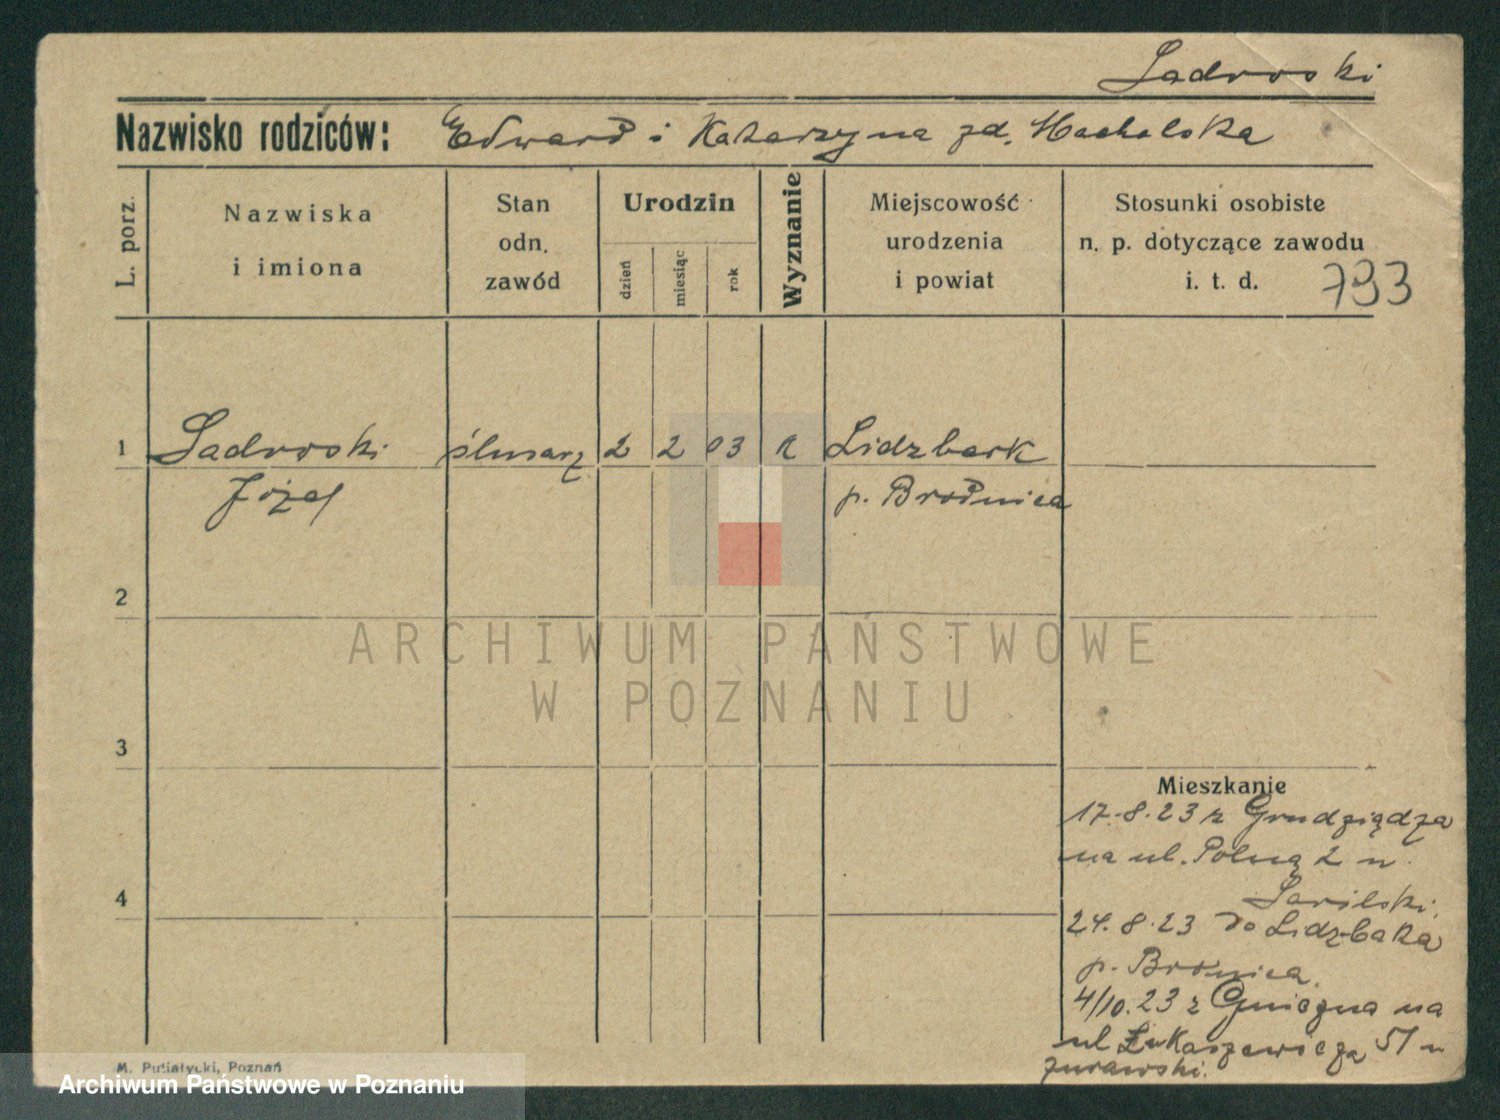 Sadowski
Nazwisko rodziców: Edward i Katarzyna zd. Machalska
L. porz.
Nazwiska
i imiona
Stan
odn.
zawód
Urodzin
dzień
miesiąc
rok
Wyznanie
Miejscowość
urodzenia
i powiat
Stosunki osobiste
n. p. dotyczące zawodu
i. t. d. 793
1 Sadowski ślusarz 2 2 03 Lidzbark
Józef p. Brodnica
2
ARCHIWUM PAŃSTWOWE
W POZNANIU
3
Mieszkanie
17.8.23 z Grudziądza
na ul. Polną 2 u
4
24.8.23 do Lidzbaka
p. Bronica.
4/10.23 z Gniezna na
ul Łukaszewicza 51 u
Żurawski.
M. Putiatycki, Poznań
Archiwum Państwowe w Poznaniu